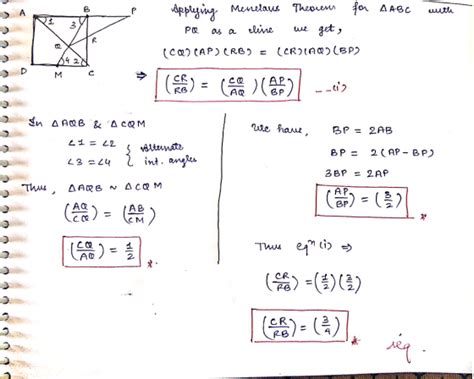 A B P
1 3
R
Q
4 2
D M C
Applying Menelaus Theorem for △ABC with
PQ as a line we get,
(CQ)(AP)(RB) = (CR)(AQ)(BP)
⇒ (CR/RB) = (CQ/AQ)(AP/BP) --(i)
In △AQB & △CQM
∠1 = ∠2
∠3 = ∠4 } Alternate int. angles
Thus, △AQB ~ △CQM
(AQ/CQ) = (AB/CM)
(CQ/AQ) = 1/2 *
We have, BP = 2AB
BP = 2(AP-BP)
3BP = 2AP
(AP/BP) = (3/2) *
Thus eqⁿ(i) ⇒
(CR/RB) = (1/2)(3/2)
(CR/RB) = (3/4) *
req